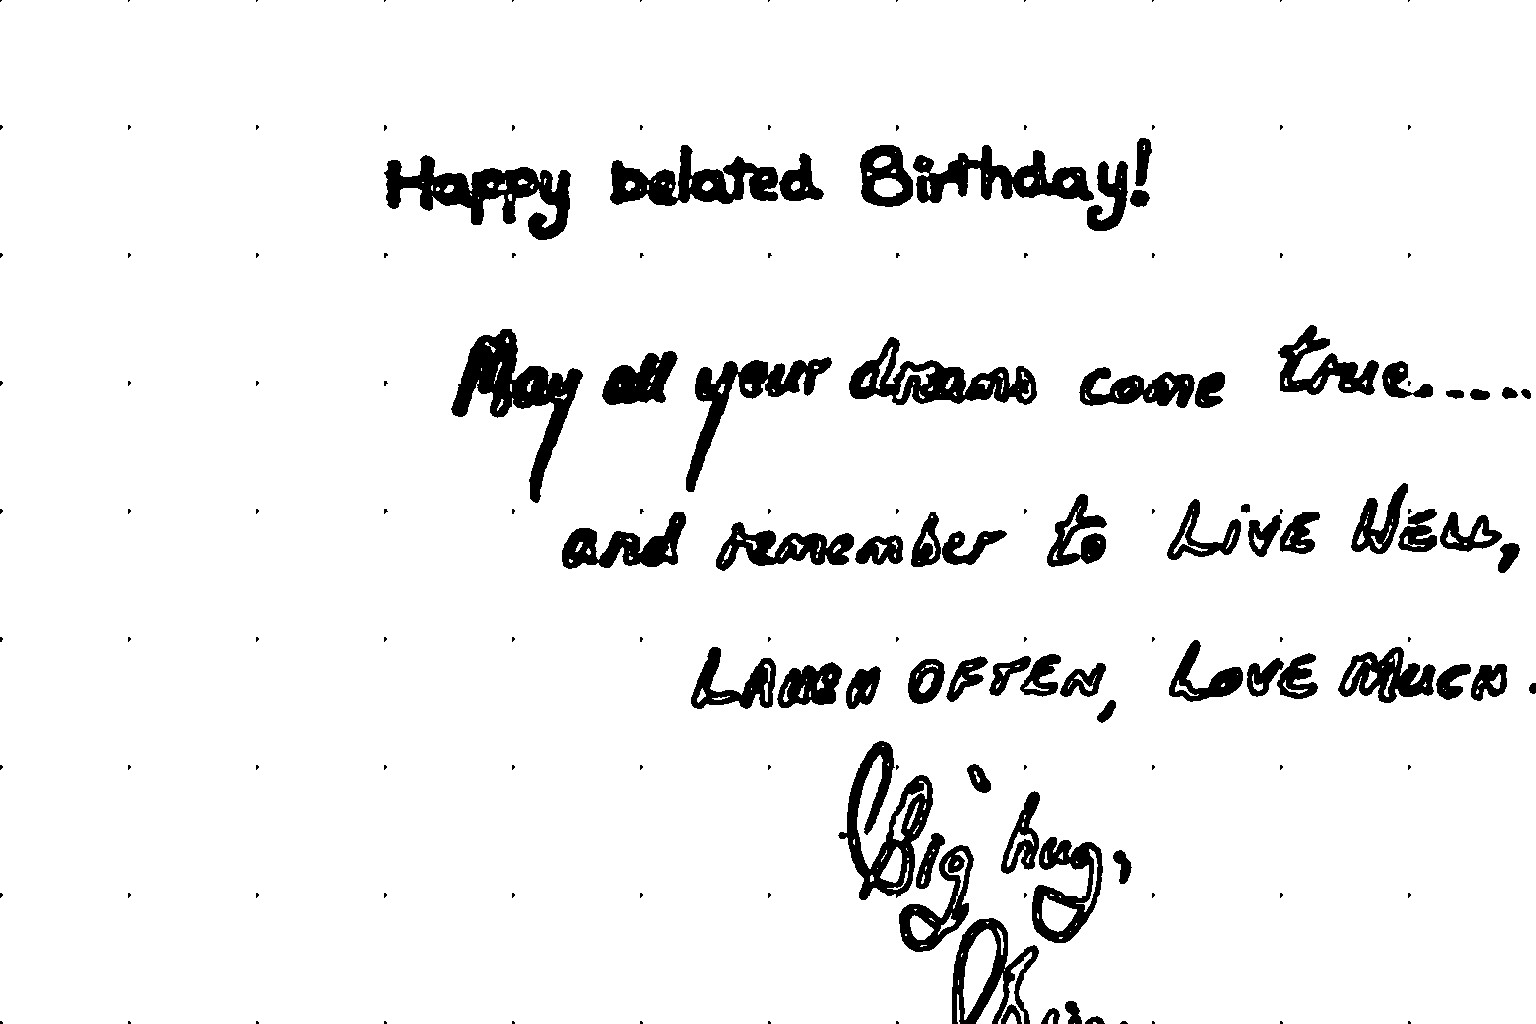 Happy belated Birthday!
May all your dreams come true......
and remember to LiVE WELL,
LAUGH OFTEN, LOVE MUCH.
Big hug,